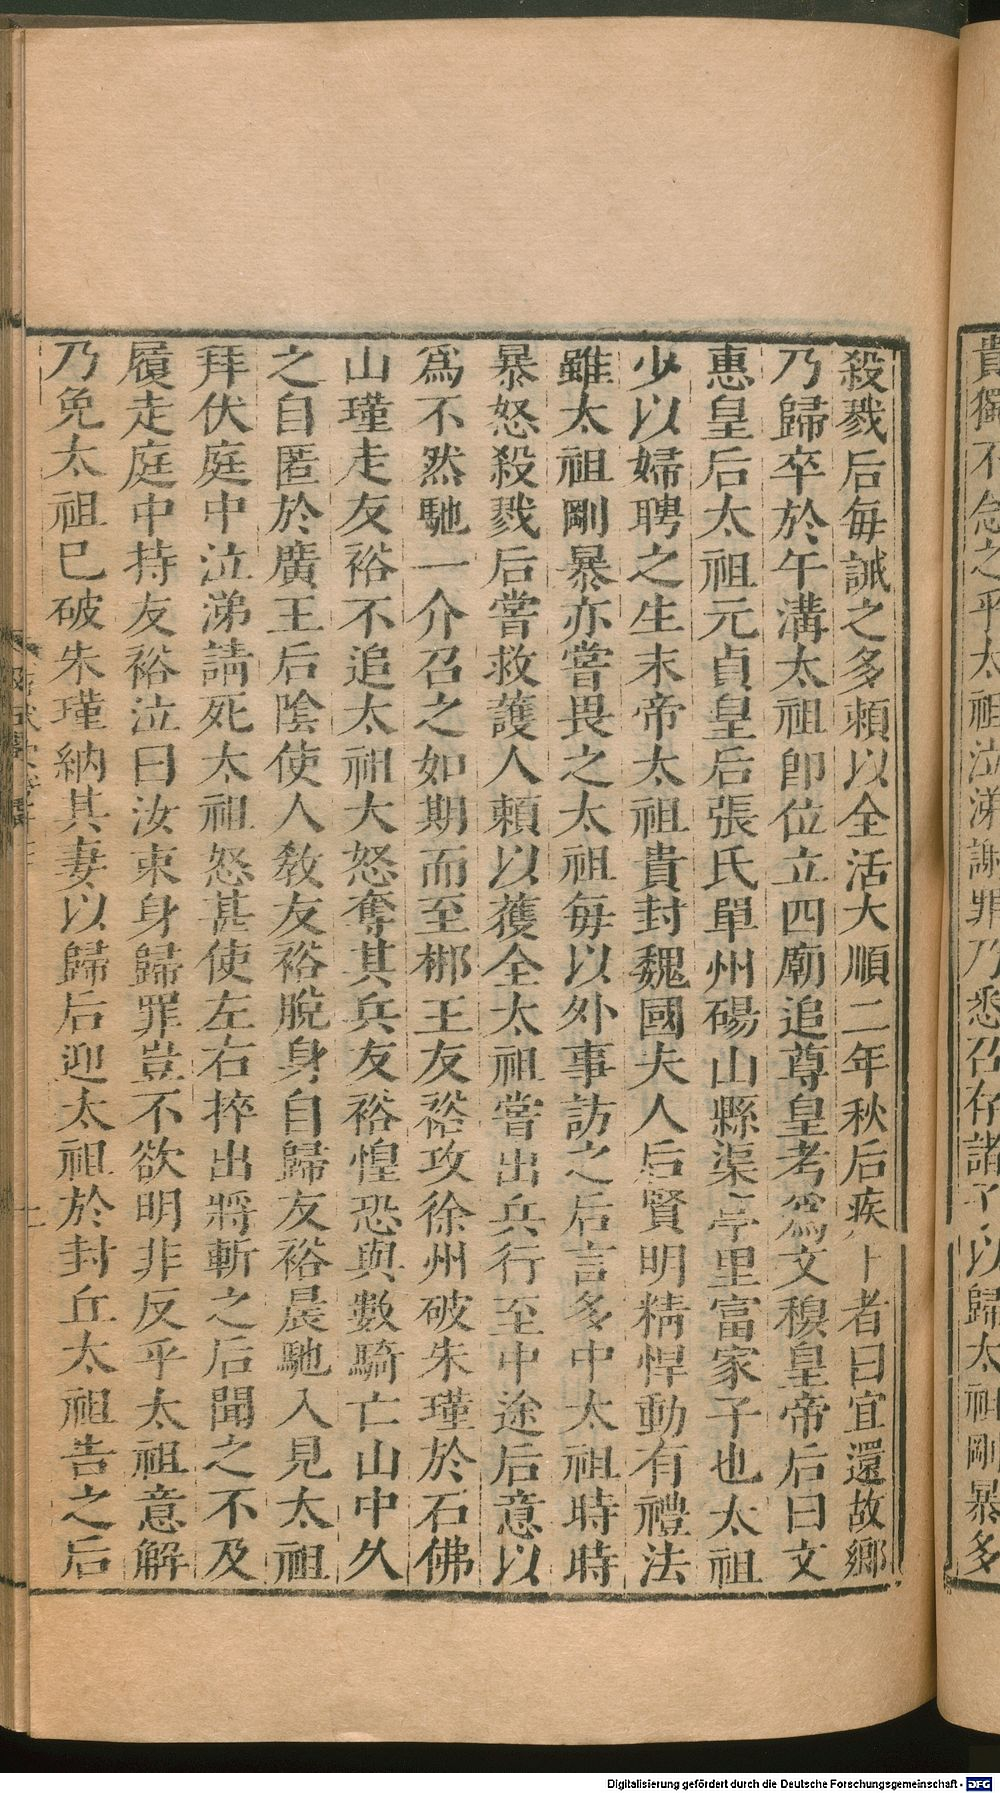 貴獨不念之乎太祖泣涕謝罪乃悉召存諸子以歸太祖剛暴多
殺戮后每誡之多賴以全活大順二年秋后疾卜者曰宜還故鄉
乃歸卒於午溝太祖卽位立四廟追尊皇考爲文穆皇帝后曰文
惠皇后太祖元貞皇后張氏單州碭山縣渠亭里富家子也太祖
少以婦聘之生末帝太祖貴封魏國夫人后賢明精悍動有禮法
雖太祖剛暴亦嘗畏之太祖每以外事訪之后言多中太祖時時
暴怒殺戮后嘗救護人賴以獲全太祖嘗出兵行至中途后意以
爲不然馳一介召之如期而至郴王友裕攻徐州破朱瑾於石佛
山瑾走友裕不追太祖大怒奪其兵友裕惶恐與數騎亡山中久
之自匿於廣王后陰使人敎友裕脫身自歸友裕晨馳入見太祖
拜伏庭中泣涕請死太祖怒甚使左右捽出將斬之后聞之不及
履走庭中持友裕泣曰汝束身歸罪豈不欲明非反乎太祖意解
乃免太祖已破朱瑾納其妻以歸后迎太祖於封丘太祖告之后
Digitalisierung gefördert durch die Deutsche Forschungsgemeinschaft - DFG